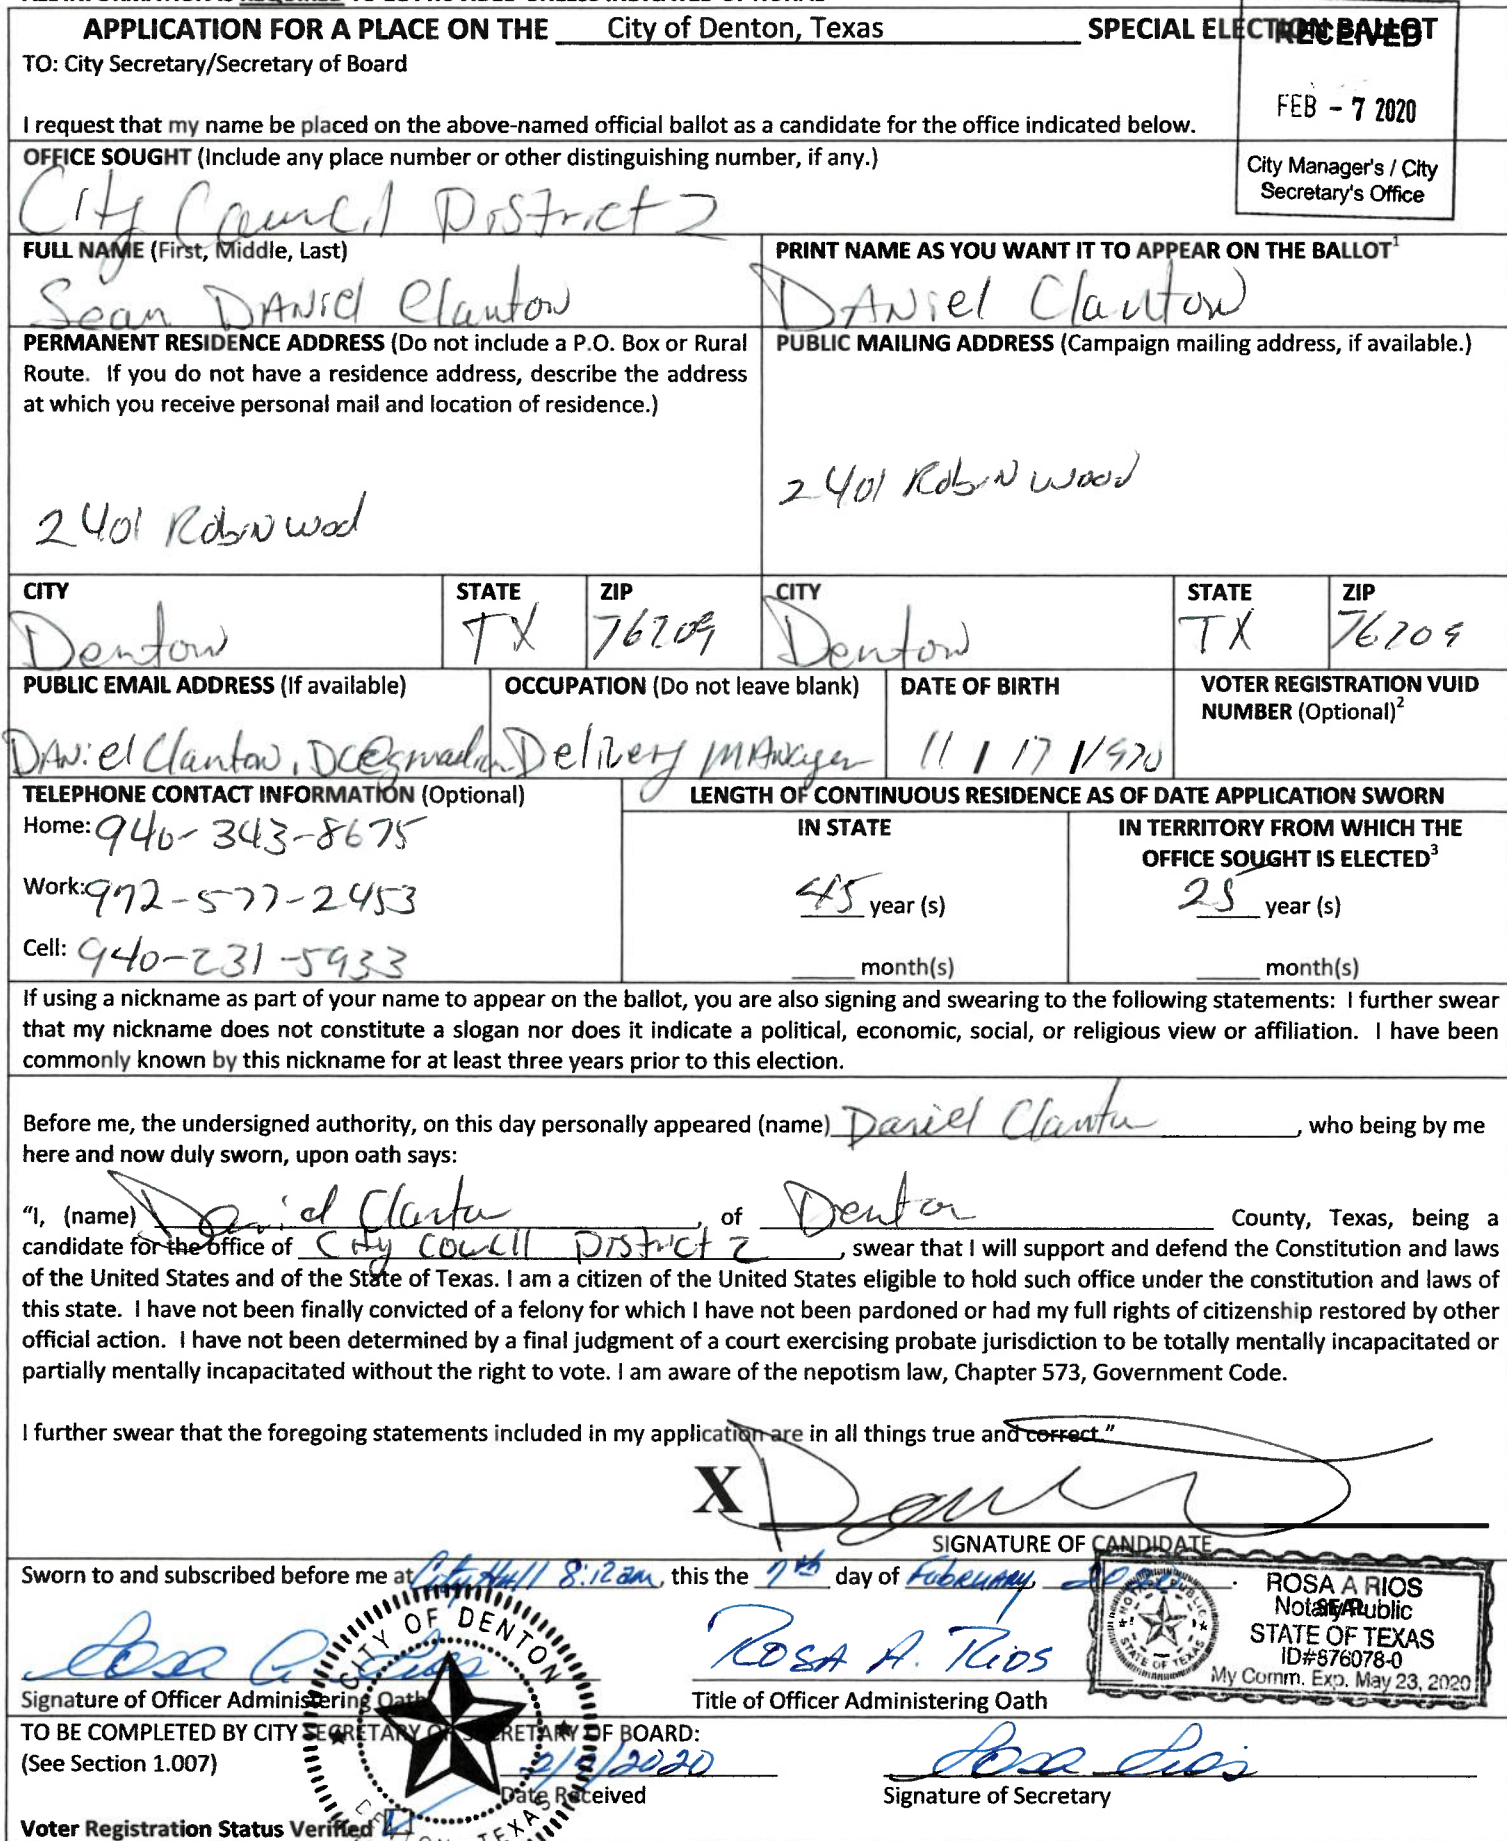 APPLICATION FOR A PLACE ON THE City of Denton, Texas SPECIAL ELECTION BALLOT
RECEIVED
TO: City Secretary/Secretary of Board
FEB - 7 2020
I request that my name be placed on the above-named official ballot as a candidate for the office indicated below.
City Manager's / City
Secretary's Office
OFFICE SOUGHT (Include any place number or other distinguishing number, if any.)
City Council District 2
FULL NAME (First, Middle, Last)
Sean DANiel Clanton
PRINT NAME AS YOU WANT IT TO APPEAR ON THE BALLOT1
DANiel Clanton
PERMANENT RESIDENCE ADDRESS (Do not include a P.O. Box or Rural
Route. If you do not have a residence address, describe the address
at which you receive personal mail and location of residence.)
2401 RobiNwood
PUBLIC MAILING ADDRESS (Campaign mailing address, if available.)
2401 RobiNwood
CITY STATE ZIP CITY STATE ZIP
Denton TX 76209 Denton TX 76209
PUBLIC EMAIL ADDRESS (If available) OCCUPATION (Do not leave blank) DATE OF BIRTH VOTER REGISTRATION VUID
NUMBER (Optional)2
DANielClanton.DC@gmail. Delivery MANager 11 / 17 / 1970
TELEPHONE CONTACT INFORMATION (Optional)
Home: 940-343-8675
Work: 972-577-2453
Cell: 940-231-5933
LENGTH OF CONTINUOUS RESIDENCE AS OF DATE APPLICATION SWORN
IN STATE
45 year (s)
month(s)
IN TERRITORY FROM WHICH THE
OFFICE SOUGHT IS ELECTED3
25 year (s)
month(s)
If using a nickname as part of your name to appear on the ballot, you are also signing and swearing to the following statements: I further swear
that my nickname does not constitute a slogan nor does it indicate a political, economic, social, or religious view or affiliation. I have been
commonly known by this nickname for at least three years prior to this election.
Before me, the undersigned authority, on this day personally appeared (name) Daniel Clanton, who being by me
here and now duly sworn, upon oath says:
"I, (name) Daniel Clanton, of Denton County, Texas, being a
candidate for the office of City Councll District 2, swear that I will support and defend the Constitution and laws
of the United States and of the State of Texas. I am a citizen of the United States eligible to hold such office under the constitution and laws of
this state. I have not been finally convicted of a felony for which I have not been pardoned or had my full rights of citizenship restored by other
official action. I have not been determined by a final judgment of a court exercising probate jurisdiction to be totally mentally incapacitated or
partially mentally incapacitated without the right to vote. I am aware of the nepotism law, Chapter 573, Government Code.
I further swear that the foregoing statements included in my application are in all things true and correct."
X
SIGNATURE OF CANDIDATE
Sworn to and subscribed before me at City Hall 8:12am, this the 7th day of February, 2020.
Rosa A. Rios ROSA A. RIOS
Signature of Officer Administering Oath Title of Officer Administering Oath
SEAL
ROSA A RIOS
Notary Public
STATE OF TEXAS
ID#876078-0
My Comm. Exp. May 23, 2020
NOTARY PUBLIC STATE OF TEXAS
CITY OF DENTON
DENTON, TEXAS
TO BE COMPLETED BY CITY SECRETARY OR SECRETARY OF BOARD:
(See Section 1.007)
2/7/2020 Rosa Rios
Date Received Signature of Secretary
Voter Registration Status Verified